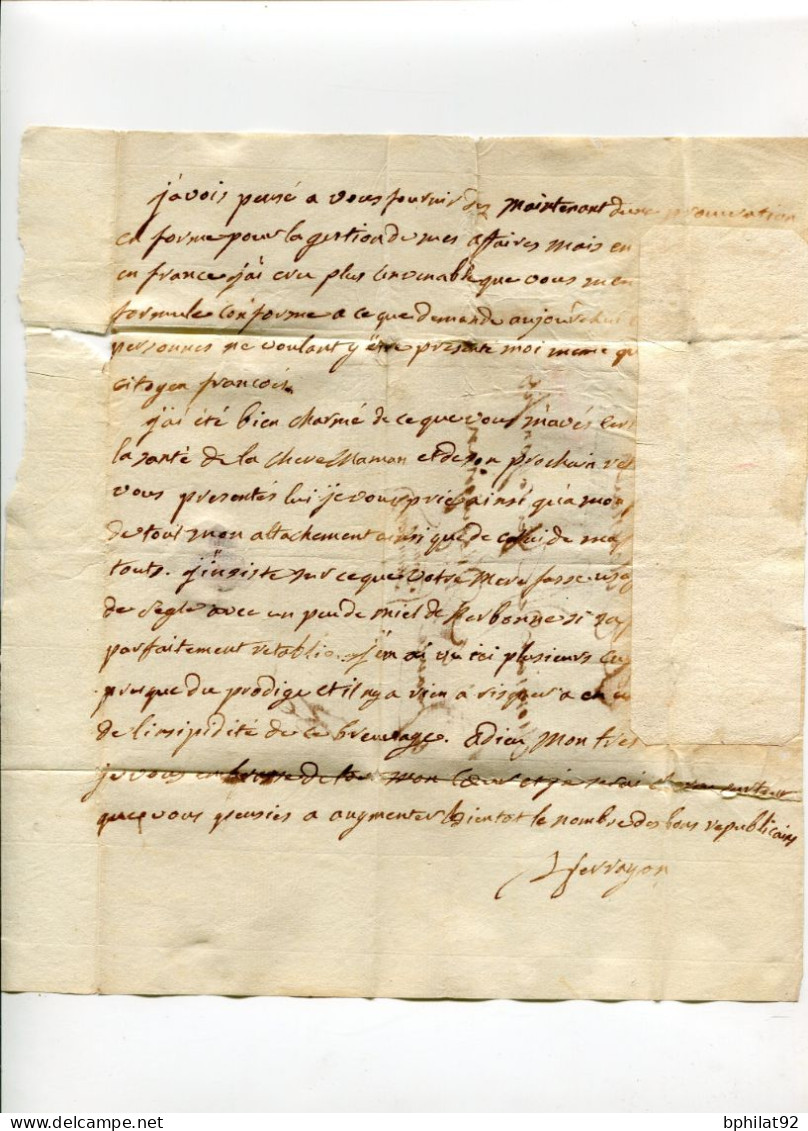 j'avois pensé a vous fournir des maintenant d'une procuration
en forme pour la gestion de mes affaires mais en
en france j'ai cru plus convenable que vous m'en
formule conforme a ce que demande aujourd'hui
personnes ne voulant y être présente moi meme qu
citoyen francois.
j'ai été bien charmé de ce que vous m'avés
la santé de la chere Maman et de son prochain
vous presentés lui je vous prie ainsi qu'a mon
de tout mon attachement ainsi que de celui de ma
touts. j'insiste sur ce que votre Mere fasse usa
de regle avec un peu de miel de Narbonne si
parfaitement retablie. j'en ai vu ici plusieurs
presque du prodige et il n'y a rien a risquer a
de l'insipidité de ce breuvage. Adieu Mon tres
je vous embrasse de tout mon coeur et je serai
que vous pensiés a augmenter bientot le nombre des bons republicains
ferrayon
bphilat92